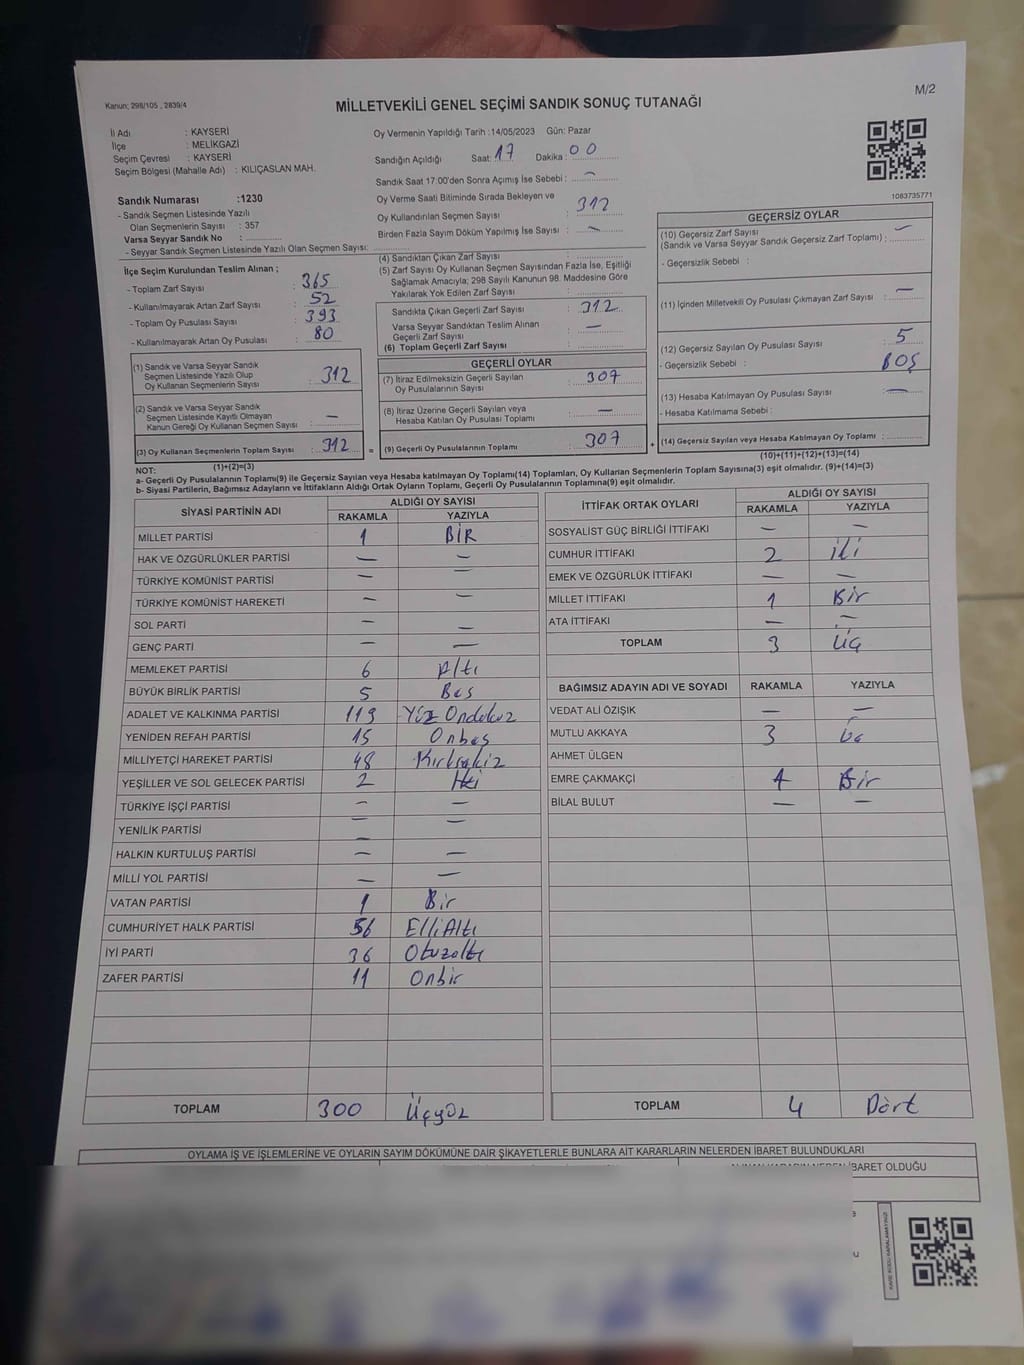 Kanun; 298/105 , 2839/4
MİLLETVEKİLİ GENEL SEÇİMİ SANDIK SONUÇ TUTANAĞI
M/2
İl Adı : KAYSERİ
İlçe : MELİKGAZİ
Seçim Çevresi : KAYSERİ
Seçim Bölgesi (Mahalle Adı) : KILIÇASLAN MAH.
Sandık Numarası :1230
- Sandık Seçmen Listesinde Yazılı
Olan Seçmenlerin Sayısı : 357
Varsa Seyyar Sandık No :
- Seyyar Sandık Seçmen Listesinde Yazılı Olan Seçmen Sayısı:
Oy Vermenin Yapıldığı Tarih :14/05/2023 Gün: Pazar
Sandığın Açıldığı Saat: 17 Dakika : 00
Sandık Saat 17:00'den Sonra Açımış İse Sebebi : —
Oy Verme Saati Bitiminde Sırada Bekleyen ve
Oy Kullandırılan Seçmen Sayısı : 312
Birden Fazla Sayım Döküm Yapılmış İse Sayısı : —
1083735771
İlçe Seçim Kurulundan Teslim Alınan ;
- Toplam Zarf Sayısı : 365
- Kullanılmayarak Artan Zarf Sayısı : 52
- Toplam Oy Pusulası Sayısı : 393
- Kullanılmayarak Artan Oy Pusulası : 80
(1) Sandık ve Varsa Seyyar Sandık
Seçmen Listesinde Yazılı Olup
Oy Kullanan Seçmenlerin Sayısı : 312
(2) Sandık ve Varsa Seyyar Sandık
Seçmen Listesinde Kayıtlı Olmayan
Kanun Gereği Oy Kullanan Seçmen Sayısı : —
(3) Oy Kullanan Seçmenlerin Toplam Sayısı : 312
(4) Sandıktan Çıkan Zarf Sayısı :
(5) Zarf Sayısı Oy Kullanan Seçmen Sayısından Fazla İse, Eşitliği
Sağlamak Amacıyla; 298 Sayılı Kanunun 98. Maddesine Göre
Yakılarak Yok Edilen Zarf Sayısı :
Sandıkta Çıkan Geçerli Zarf Sayısı : 312
Varsa Seyyar Sandıktan Teslim Alınan
Geçerli Zarf Sayısı : —
(6) Toplam Geçerli Zarf Sayısı :
GEÇERLİ OYLAR
(7) İtiraz Edilmeksizin Geçerli Sayılan
Oy Pusulalarının Sayısı : 307
(8) İtiraz Üzerine Geçerli Sayılan veya
Hesaba Katılan Oy Pusulası Toplamı : —
= (9) Geçerli Oy Pusulalarının Toplamı : 307 +
GEÇERSİZ OYLAR
(10) Geçersiz Zarf Sayısı —
(Sandık ve Varsa Seyyar Sandık Geçersiz Zarf Toplamı) :
- Geçersizlik Sebebi :
(11) İçinden Milletvekili Oy Pusulası Çıkmayan Zarf Sayısı : —
(12) Geçersiz Sayılan Oy Pusulası Sayısı : 5
- Geçersizlik Sebebi : BOŞ
(13) Hesaba Katılmayan Oy Pusulası Sayısı : —
- Hesaba Katılmama Sebebi :
(14) Geçersiz Sayılan veya Hesaba Katılmayan Oy Toplamı :
(1)+(2)=(3)
(10)+(11)+(12)+(13)=(14)
NOT:
a- Geçerli Oy Pusulalarının Toplamı(9) ile Geçersiz Sayılan veya Hesaba katılmayan Oy Toplamı(14) Toplamları, Oy Kullanan Seçmenlerin Toplam Sayısına(3) eşit olmalıdır. (9)+(14)=(3)
b- Siyasi Partilerin, Bağımsız Adayların ve İttifakların Aldığı Ortak Oyların Toplamı, Geçerli Oy Pusulalarının Toplamına(9) eşit olmalıdır.
SİYASİ PARTİNİN ADI ALDIĞI OY SAYISI
RAKAMLA YAZIYLA
MİLLET PARTİSİ 1 BİR
HAK VE ÖZGÜRLÜKLER PARTİSİ — —
TÜRKİYE KOMÜNİST PARTİSİ — —
TÜRKİYE KOMÜNİST HAREKETİ — —
SOL PARTİ — —
GENÇ PARTİ — —
MEMLEKET PARTİSİ 6 Altı
BÜYÜK BİRLİK PARTİSİ 5 Beş
ADALET VE KALKINMA PARTİSİ 119 Yüz Ondokuz
YENİDEN REFAH PARTİSİ 15 Onbeş
MİLLİYETÇİ HAREKET PARTİSİ 48 Kırksekiz
YEŞİLLER VE SOL GELECEK PARTİSİ 2 İki
TÜRKİYE İŞÇİ PARTİSİ — —
YENİLİK PARTİSİ — —
HALKIN KURTULUŞ PARTİSİ — —
MİLLİ YOL PARTİSİ — —
VATAN PARTİSİ 1 Bir
CUMHURİYET HALK PARTİSİ 56 Elli Altı
İYİ PARTİ 36 Otuzaltı
ZAFER PARTİSİ 11 Onbir
TOPLAM 300 Üçyüz
İTTİFAK ORTAK OYLARI ALDIĞI OY SAYISI
RAKAMLA YAZIYLA
SOSYALİST GÜÇ BİRLİĞİ İTTİFAKI — —
CUMHUR İTTİFAKI 2 iki
EMEK VE ÖZGÜRLÜK İTTİFAKI — —
MİLLET İTTİFAKI 1 Bir
ATA İTTİFAKI — —
TOPLAM 3 Üç
BAĞIMSIZ ADAYIN ADI VE SOYADI RAKAMLA YAZIYLA
VEDAT ALİ ÖZIŞIK — —
MUTLU AKKAYA 3 üç
AHMET ÜLGEN
EMRE ÇAKMAKÇİ 1 Bir
BİLAL BULUT — —
TOPLAM 4 Dört
OYLAMA İŞ VE İŞLEMLERİNE VE OYLARIN SAYIM DÖKÜMÜNE DAİR ŞİKAYETLERLE BUNLARA AİT KARARLARIN NELERDEN İBARET BULUNDUKLARI
İBARET OLDUĞU